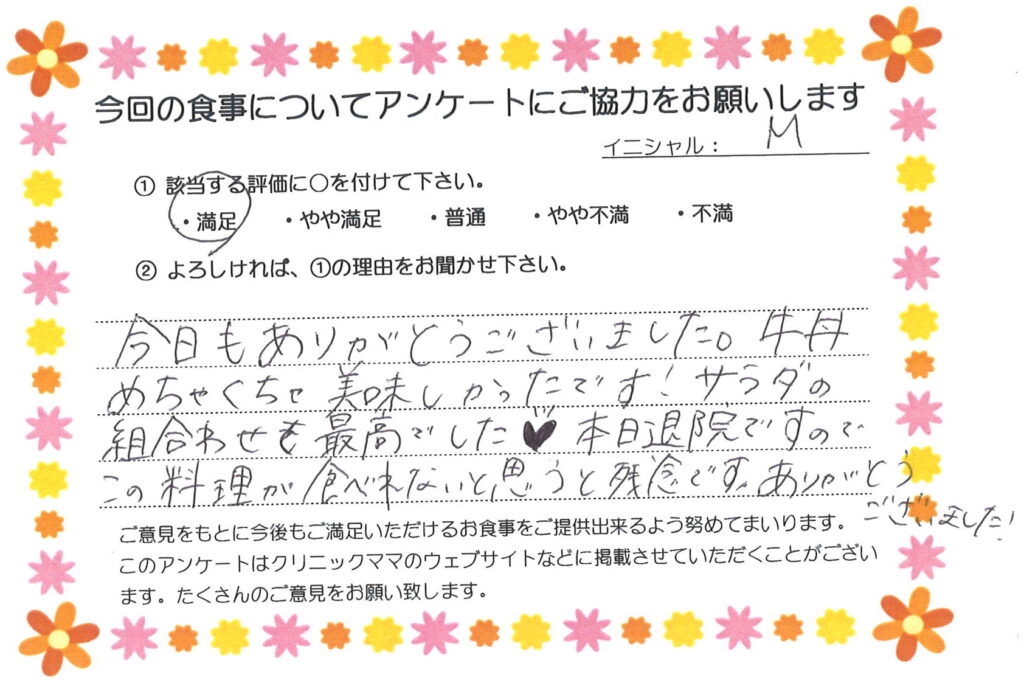 今回の食事についてアンケートにご協力をお願いします
イニシャル： M
① 該当する評価に○を付けて下さい。
・満足 ・やや満足 ・普通 ・やや不満 ・不満
② よろしければ、①の理由をお聞かせ下さい。
今日もありがとうございました。牛丼
めちゃくちゃ美味しかったです！サラダの
組合わせも最高でした♥ 本日退院ですので
この料理が食べれないと思うと残念です。ありがとう
ございました！
ご意見をもとに今後もご満足いただけるお食事をご提供出来るよう努めてまいります。
このアンケートはクリニックママのウェブサイトなどに掲載させていただくことがござい
ます。たくさんのご意見をお願い致します。